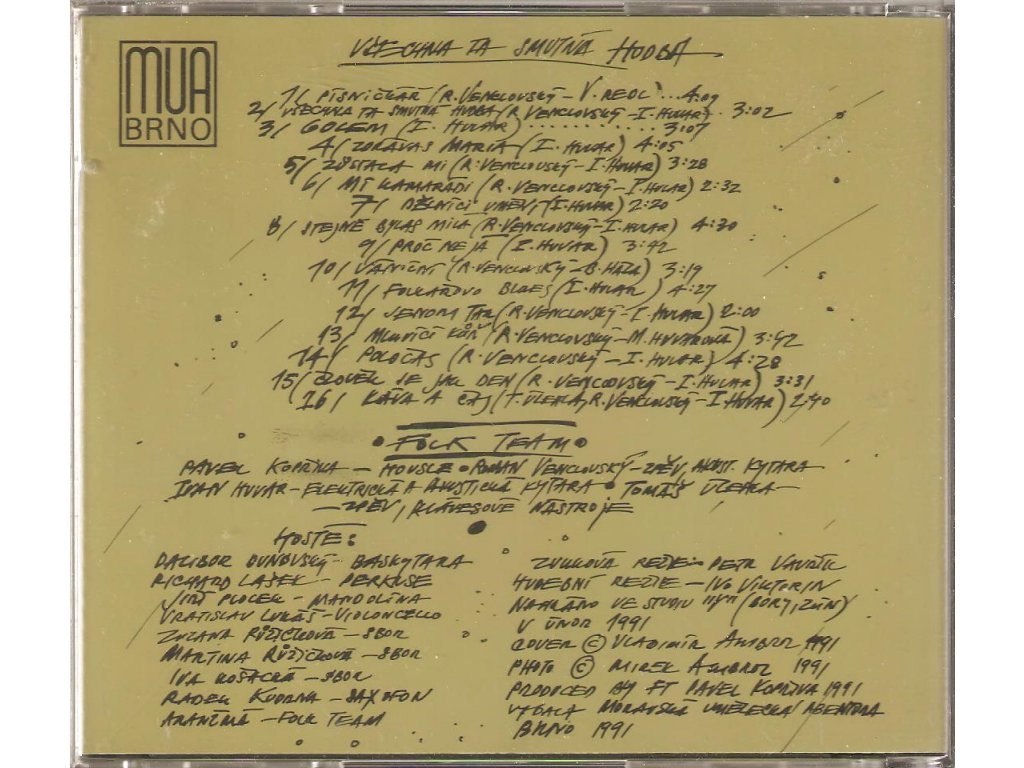 MUA
BRNO
VŠECHNA TA SMUTNÁ HUDBA
1/ PÍSNIČKÁŘ (R. VENCLOVSKÝ – V. REDL) ... 4:09
2/ VŠECHNA TA SMUTNÁ HUDBA (R. VENCLOVSKÝ – I. HUVAR) . 3:02
3/ GOLEM (I. HUVAR) ........... 3:07
4/ ZDRÁVAS MARIA (I. HUVAR) 4:05
5/ ZŮSTALA MI (R. VENCLOVSKÝ – I. HUVAR) 3:28
6/ MÍ KAMARÁDI (R. VENCLOVSKÝ – I. HUVAR) 2:32
7/ DĚLNÍCI UMĚNÍ (I. HUVAR) 2:20
8/ STEJNĚ BYLAS MILÁ (R. VENCLOVSKÝ – I. HUVAR) 4:30
9/ PROČ NE JÁ (I. HUVAR) 3:42
10/ VÁNIČNÍ (R. VENCLOVSKÝ – B. HÁZA) 3:19
11/ FOLKAŘOVO BLUES (I. HUVAR) 4:27
12/ JENOM TAK (R. VENCLOVSKÝ – I. HUVAR) 2:00
13/ MLUVÍCÍ KŮŇ (R. VENCLOVSKÝ – M. HUVAROVÁ) 3:42
14/ POLOČAS (R. VENCLOVSKÝ – I. HUVAR) 4:28
15/ ČLOVĚK JE JAK DEN (R. VENCLOVSKÝ – I. HUVAR) 3:31
16/ KÁVA A ČAJ (T. ÚLEHLA, R. VENCLOVSKÝ – I. HUVAR) 2:40
• FOLK TEAM •
PAVEL KOPŘIVA – HOUSLE • ROMAN VENCLOVSKÝ – ZPĚV, AKUST. KYTARA
IVAN HUVAR – ELEKTRICKÁ A AKUSTICKÁ KYTARA • TOMÁŠ ÚLEHLA –
– ZPĚV, KLÁVESOVÉ NÁSTROJE
HOSTÉ:
DALIBOR DUNOVSKÝ – BASKYTARA
RICHARD LAŠEK – PERKUSE
JIŘÍ PLOCEK – MANDOLÍNA
VRATISLAV LUKÁŠ – VIOLONCELLO
ZUZANA RŮŽIČKOVÁ – SBOR
MARTINA RŮŽIČKOVÁ – SBOR
IVA KOŠACKÁ – SBOR
RADEK KUDRNA – SAXOFON
ARANŽMÁ – FOLK TEAM
ZVUKOVÁ REŽIE – PETR VAVŘÍK
HUDEBNÍ REŽIE – IVO VIKTORIN
NAHRÁNO VE STUDIU (BOŘY, ZLÍN)
V ÚNOR 1991
COVER © VLADIMÍR AMBROZ 1991
PHOTO © MIREK AMBROZ 1991
PRODUCED BY FT PAVEL KOPŘIVA 1991
VYDALA MORAVSKÁ UMĚLECKÁ AGENTURA
BRNO 1991